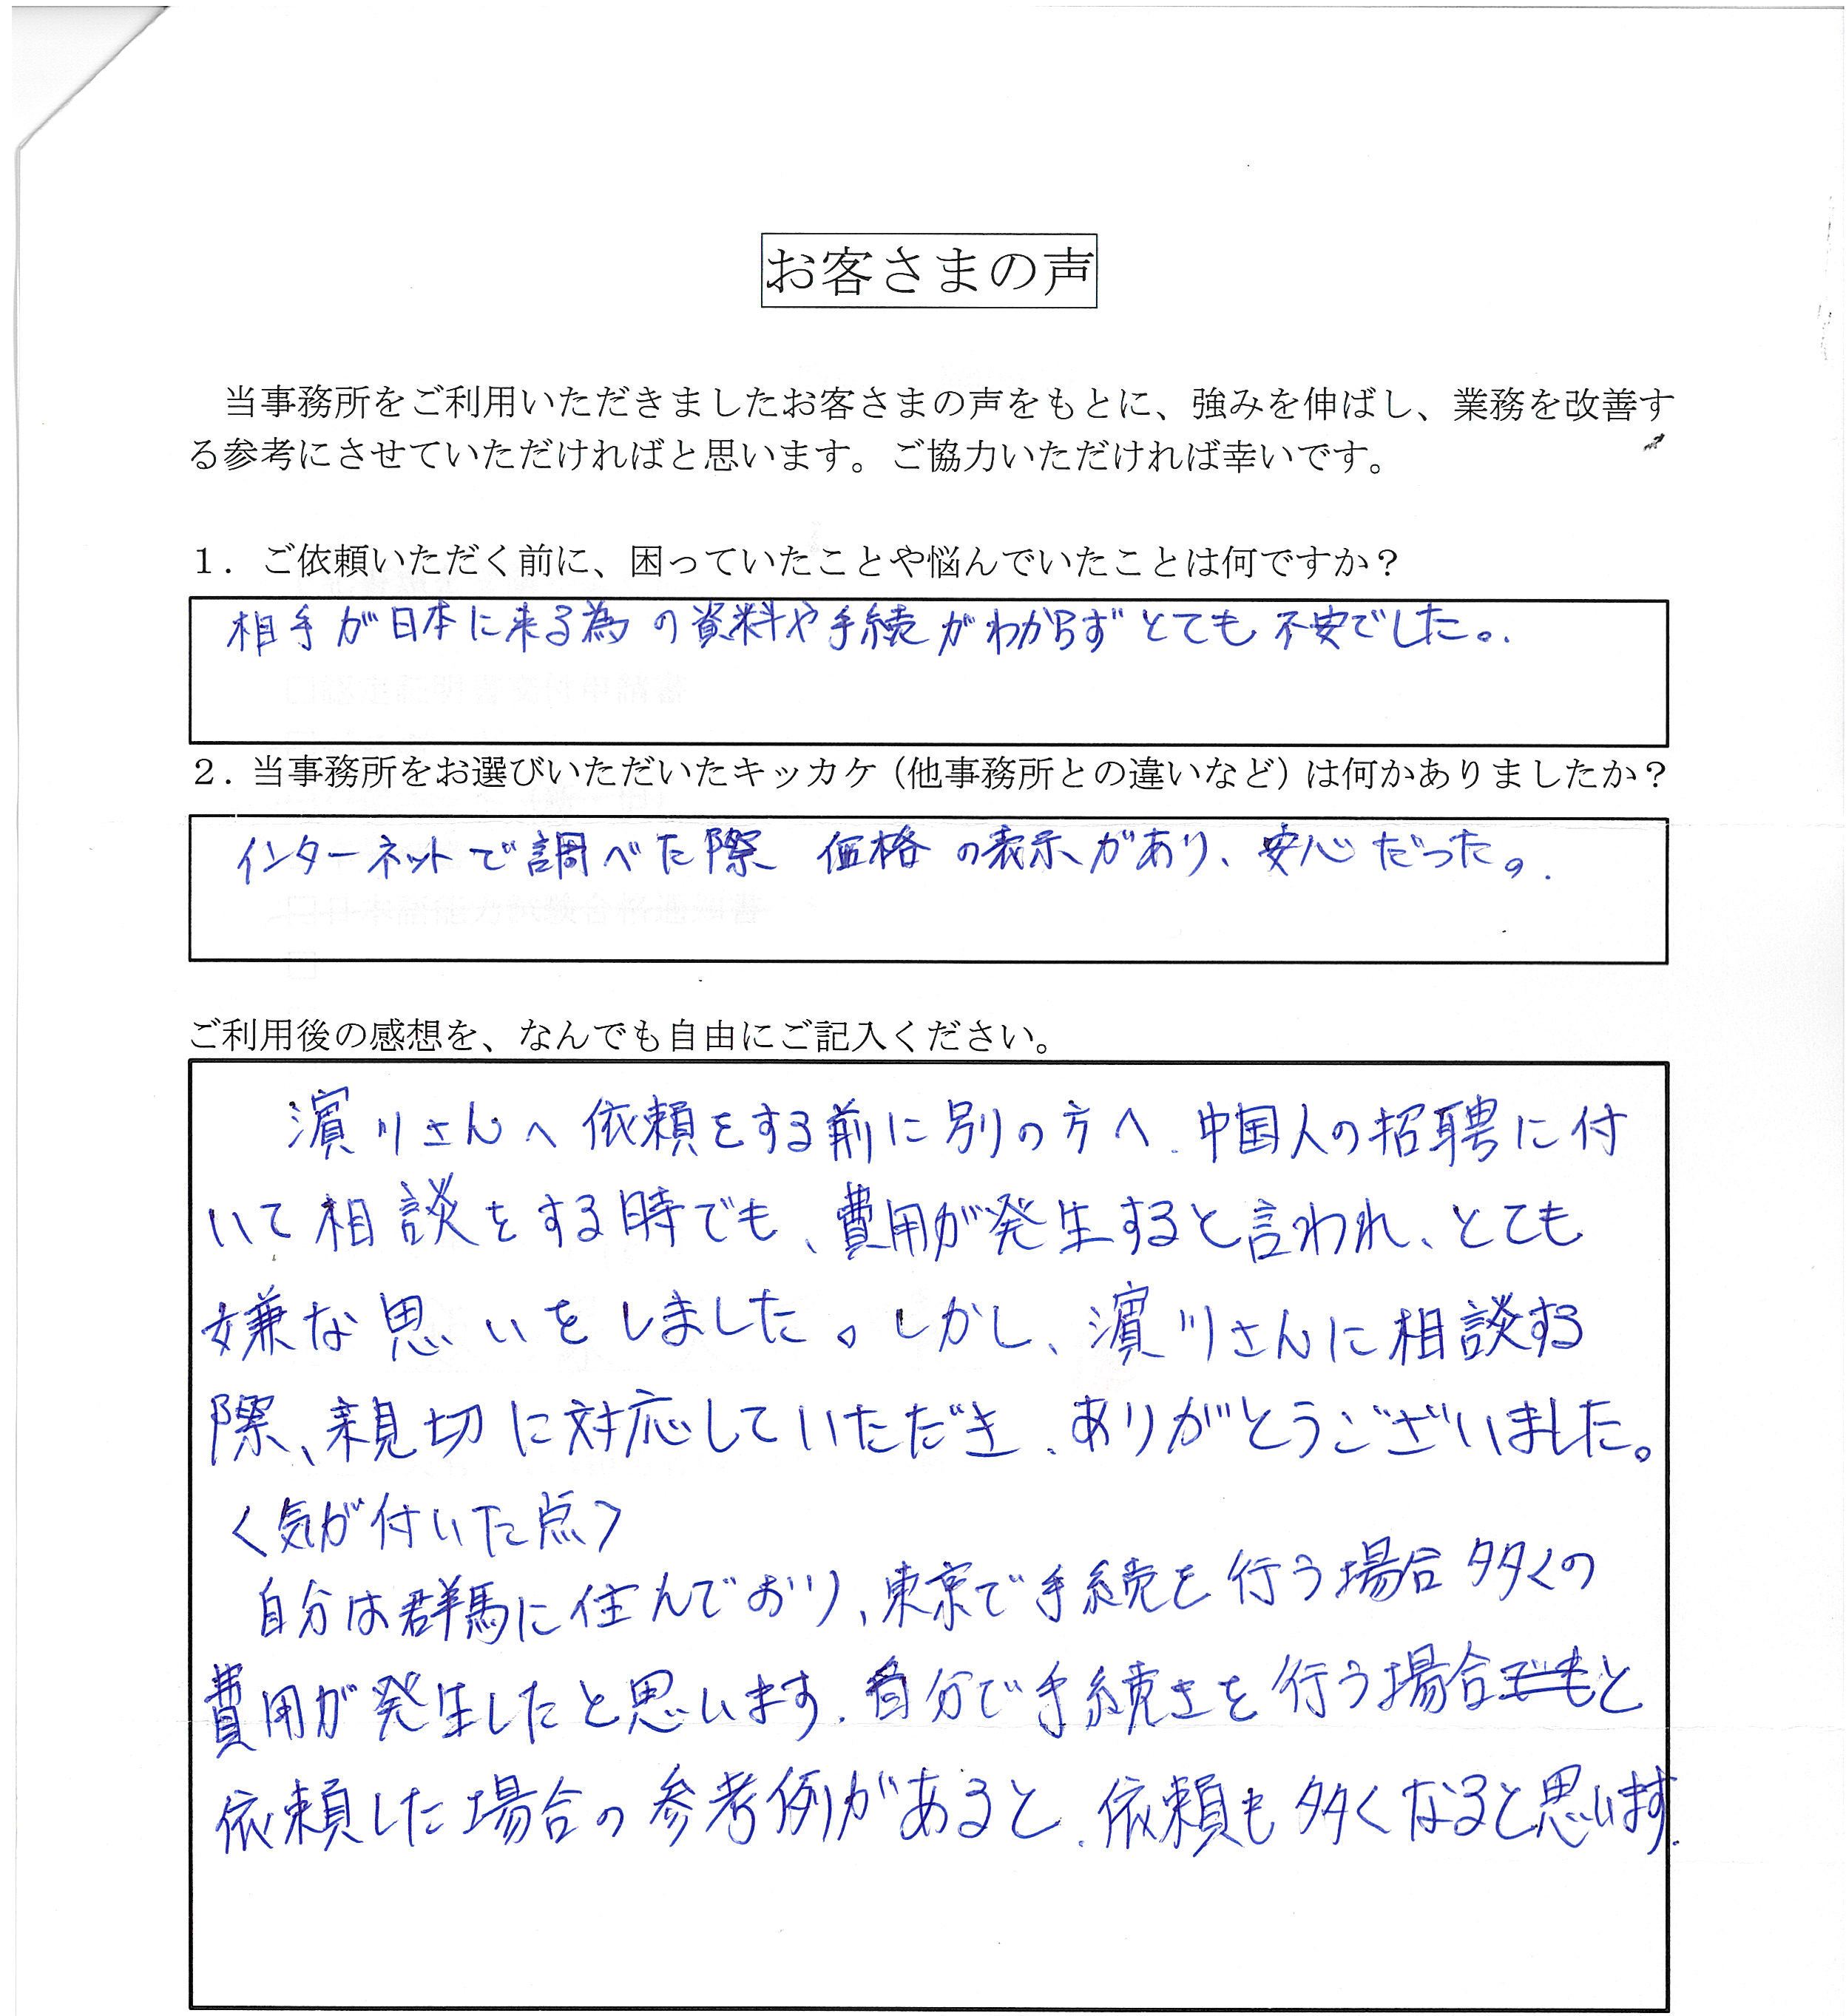 お客さまの声
当事務所をご利用いただきましたお客さまの声をもとに、強みを伸ばし、業務を改善す
る参考にさせていただければと思います。ご協力いただければ幸いです。
１．ご依頼いただく前に、困っていたことや悩んでいたことは何ですか？
相手が日本に来る為の資料や手続がわからずとても不安でした。
２．当事務所をお選びいただいたキッカケ（他事務所との違いなど）は何かありましたか？
インターネットで調べた際 価格の表示があり、安心だった。
ご利用後の感想を、なんでも自由にご記入ください。
濱川さんへ依頼をする前に別の方へ、中国人の招聘に付
いて相談をする時でも、費用が発生すると言われ、とても
嫌な思いをしました。しかし、濱川さんに相談する
際、親切に対応していただき、ありがとうございました。
〈気が付いた点〉
自分は群馬に住んでおり、東京で手続を行う場合多くの
費用が発生したと思います。自分で手続きを行う場合と
依頼した場合の参考例があると、依頼も多くなると思います。